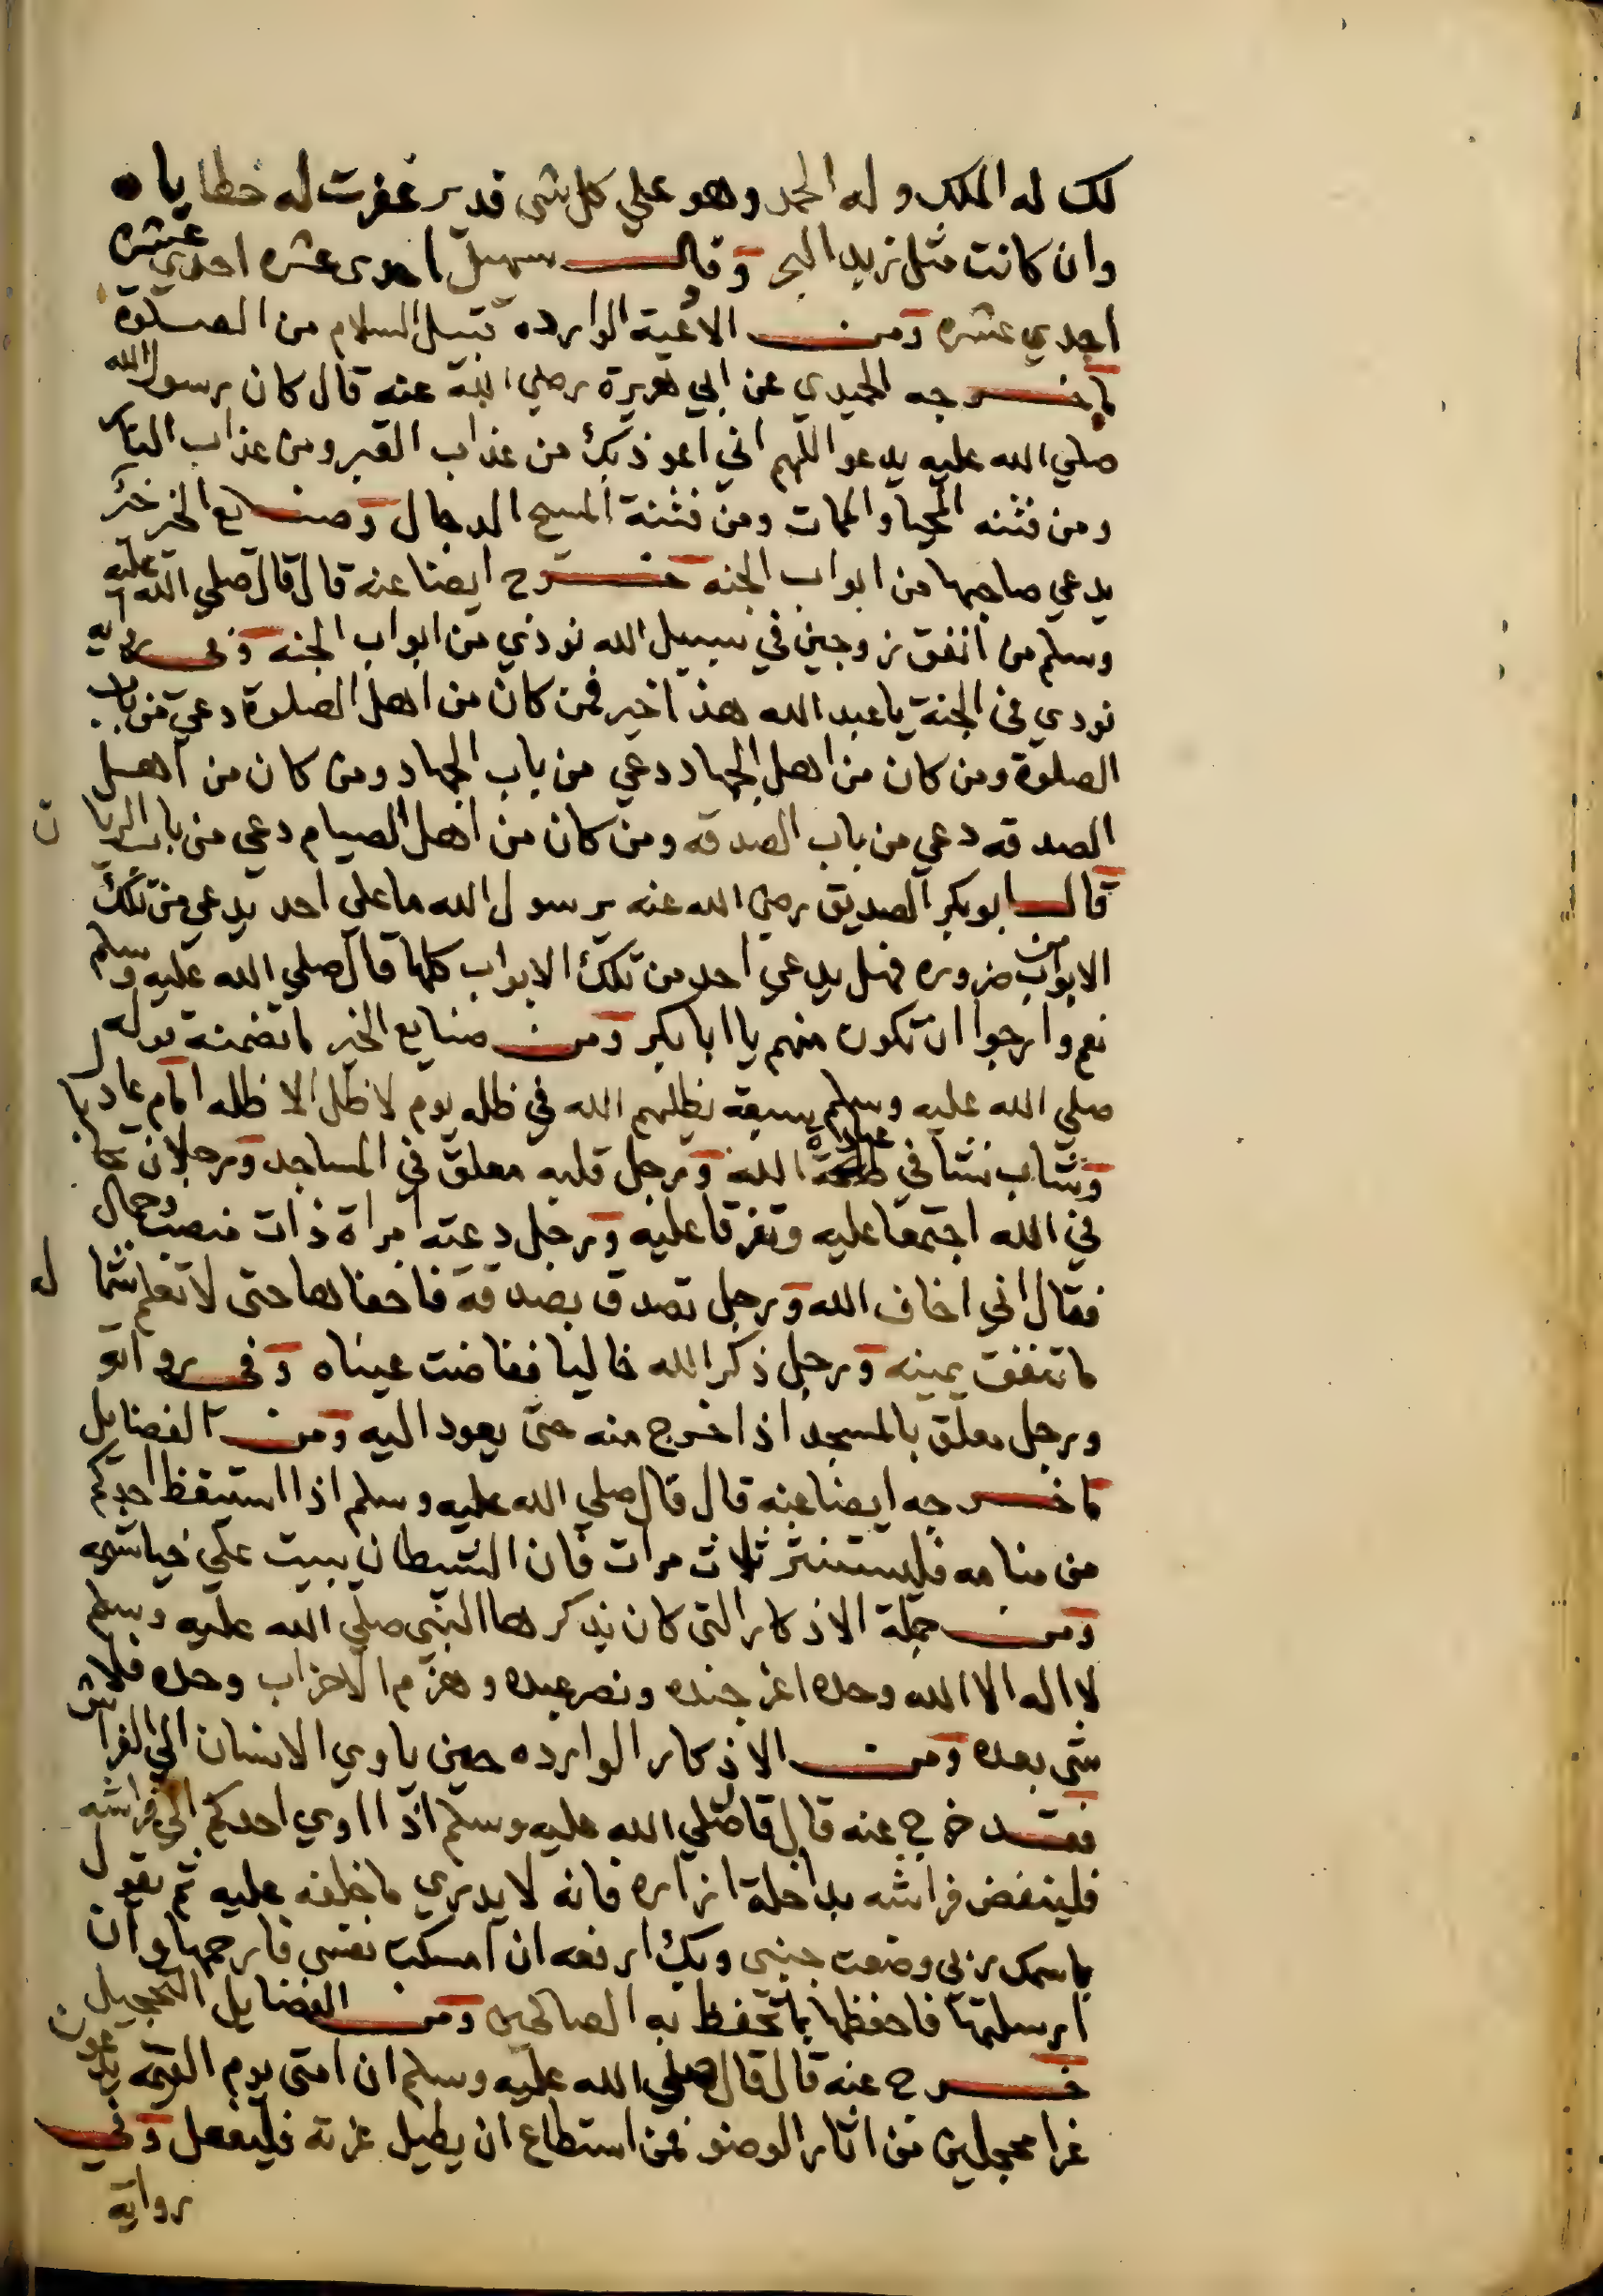 لك له الملك وله الحمد وهو علي كل شي قدير غفرت له خطاياه
وان كانت مثل زبد البحر وقال سهيل احدي عشره احدي عشره
احدي عشره ومن الادعية الوارده قبيل السلام من الصلوة
ما خرجه الحميدي عن ابي هريرة رضي الله عنه قال كان رسول الله
صلي الله عليه يدعو اللهم اني اعوذ بك من عذاب القبر ومن عذاب النار
ومن فتنه المحيا والممات ومن فتنة المسيح الدجال وصنايع الخير خير
يدعي صاحبها من ابواب الجنه خرج ايضا عنه قال قال صلي الله عليه
وسلم من انفق زوجين في سبيل الله نودي من ابواب الجنه وفي روايه
نودي في الجنة يا عبد الله هذا خير فمن كان من اهل الصلوة دعي من باب
الصلوة ومن كان من اهل الجهاد دعي من باب الجهاد ومن كان من اهل
الصدقه دعي من باب الصدقه ومن كان من اهل الصيام دعي من باب الريان
قال ابو بكر الصديق رضي الله عنه يرسول الله ما علي احد يدعي من تلك
الابواب من ضروره فهل يدعي احد من تلك الابواب كلها قال صلي الله عليه وسلم
نعم وارجوا ان تكون منهم يا ابا بكر ومن صنايع الخير ما تضمنه قوله
صلي الله عليه وسلم سبعة يظلهم الله في ظله يوم لا ظل الا ظله امام عادل
وشاب نشا في عبادة الله ورجل قلبه معلق في المساجد ورجلان تحابا
في الله اجتمعا عليه وتفرقا عليه ورجل دعته امراة ذات منصب وجمال
فقال اني اخاف الله ورجل تصدق بصدقة فاخفاها حتى لا تعلم شماله
ما تنفق يمينه ورجل ذكر الله خاليا ففاضت عيناه وفي رواية
ورجل معلق بالمسجد اذا خرج منه حتى يعود اليه ومن الفضايل
ما خرجه ايضا عنه قال قال صلي الله عليه وسلم اذا استيقظ احدكم
من منامه فليستنثر ثلاث مرات فان الشيطان يبيت علي خياشيمه
ومن جملة الاذكار التى كان يذكرها النبي صلي الله عليه وسلم
لا اله الا الله وحده اعز جنده ونصر عبده وهزم الاحزاب وحده فلا
شي بعده ومن الاذكار الوارده حين ياوي الانسان الي الفراش
فقد خرج عنه قال قال صلي الله عليه وسلم اذا اوي احدكم الي فراشه
فلينفض فراشه بداخلة ازاره فانه لا يدري ما خلفه عليه ثم يقول
باسمك ربي وضعت جنبي وبك ارفعه ان امسكت نفسي فارحمها وان
ارسلتها فاحفظها بما تحفظ به الصالحين ومن الفضايل التحجيل
خرج عنه قال قال صلي الله عليه وسلم ان امتى يوم القيمه يدعون
غرا محجلين من اثار الوضو فمن استطاع ان يطيل غرته فليفعل وفي
رواية